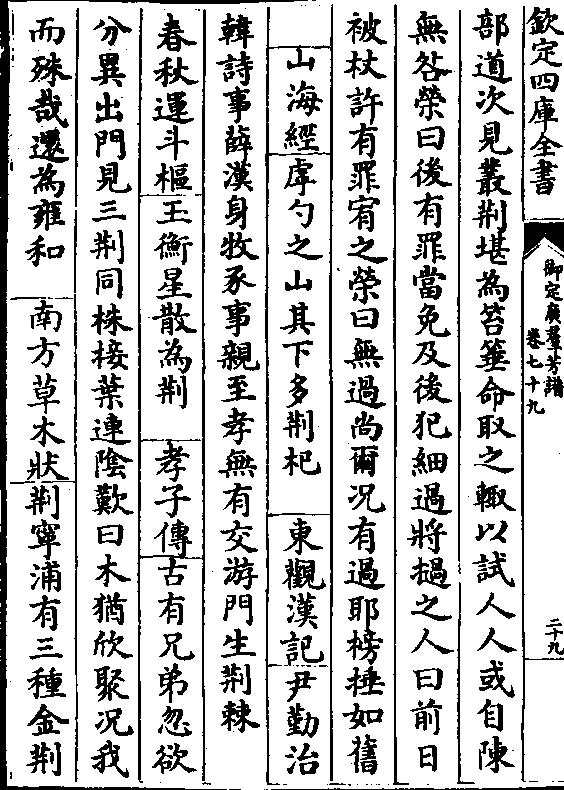 欽定四庫全書
御定廣羣芳譜
卷七十九
二十九
部道次見叢荆堪為笞箠命取之輙以試人人或自陳
無咎榮曰後有罪當免及後犯細過將撾之人曰前日
被杖許有罪宥之榮曰無過尚爾况有過耶榜捶如舊
山海經虖勺之山其下多荆杞 東觀漢記尹勤治
韓詩事薛漢身牧豕事親至孝無有交游門生荆棘
春秋運斗樞玉衡星散為荆 孝子傳古有兄弟忽欲
分異出門見三荆同株接葉連陰歎曰木猶欣聚况我
而殊哉還為雍和 南方草木狀荆寧浦有三種金荆